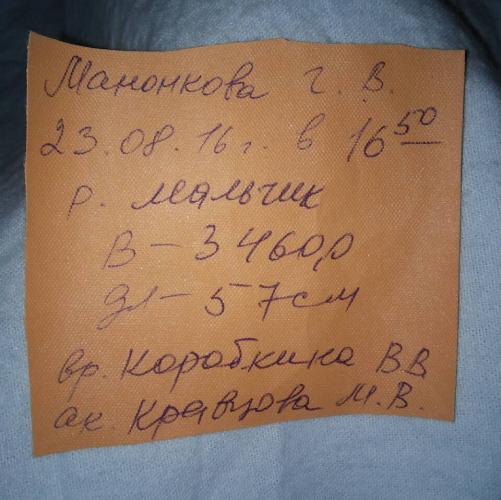 Манонкова Г. В.
23.08.16 г. в 16 50
р. мальчик
В - 3460,0
дл - 57 см
вр. Коробкина ВВ
ак. Кравцова М.В.